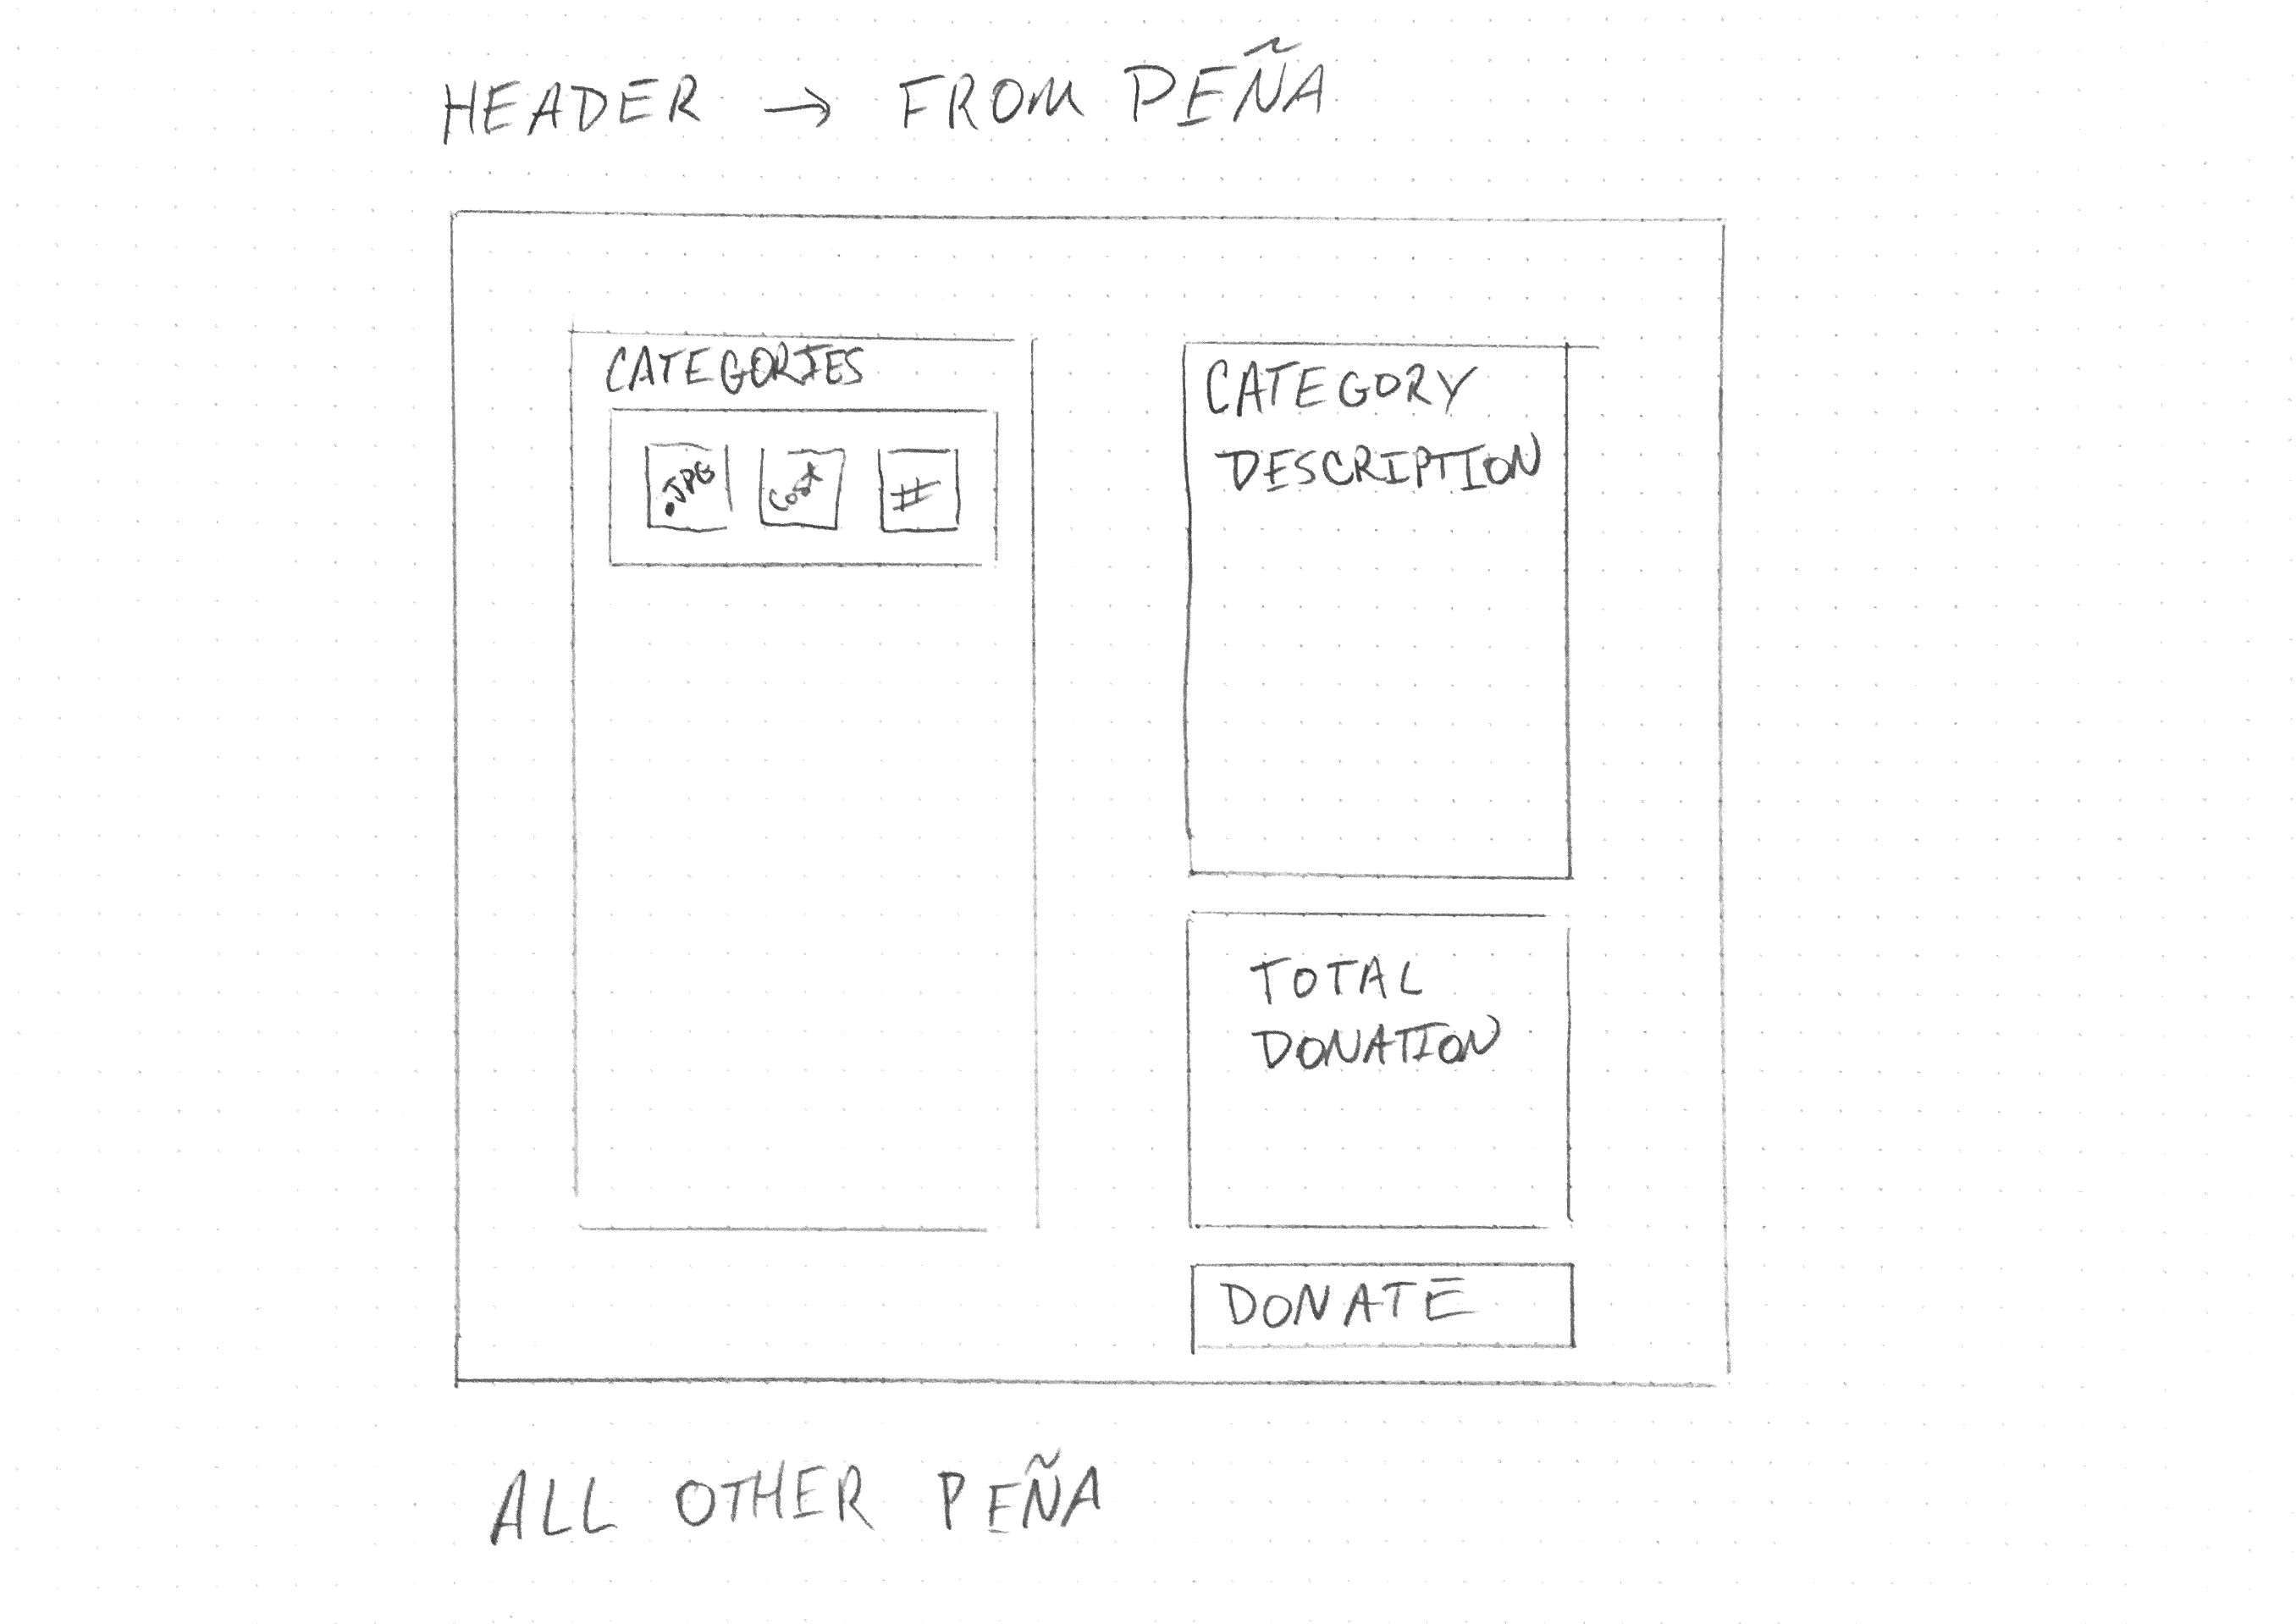 HEADER → FROM PEÑA
CATEGORIES
.JPG
Cost
#
CATEGORY
DESCRIPTION
TOTAL
DONATION
DONATE
ALL OTHER PEÑA